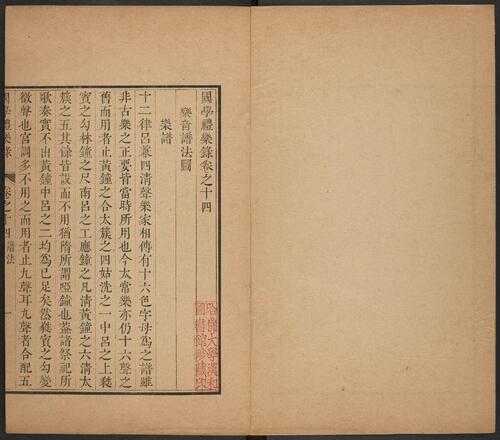 國學禮樂錄卷之十四
樂音譜法圖
樂譜
十二律呂兼四清聲樂家相傳有十六色字母爲之譜雖
非古樂之正要皆當時所用也今太常樂亦仍十六聲之
舊而用者止黃鐘之合太簇之四姑洗之一中呂之上蕤
賓之勾林鐘之尺南呂之工應鐘之凡清黃鐘之六清太
簇之五其餘皆設而不用猶隋所謂啞鐘也蓋諸祭祀所
歌奏實不出黃鐘中呂之二均爲已足矣然蕤賓之勾變
徵聲也宮調多不用之而用者止九聲耳九聲者合配五
國學禮樂錄
卷之十四 譜法
一
哈佛大學漢和
圖書館珍藏印